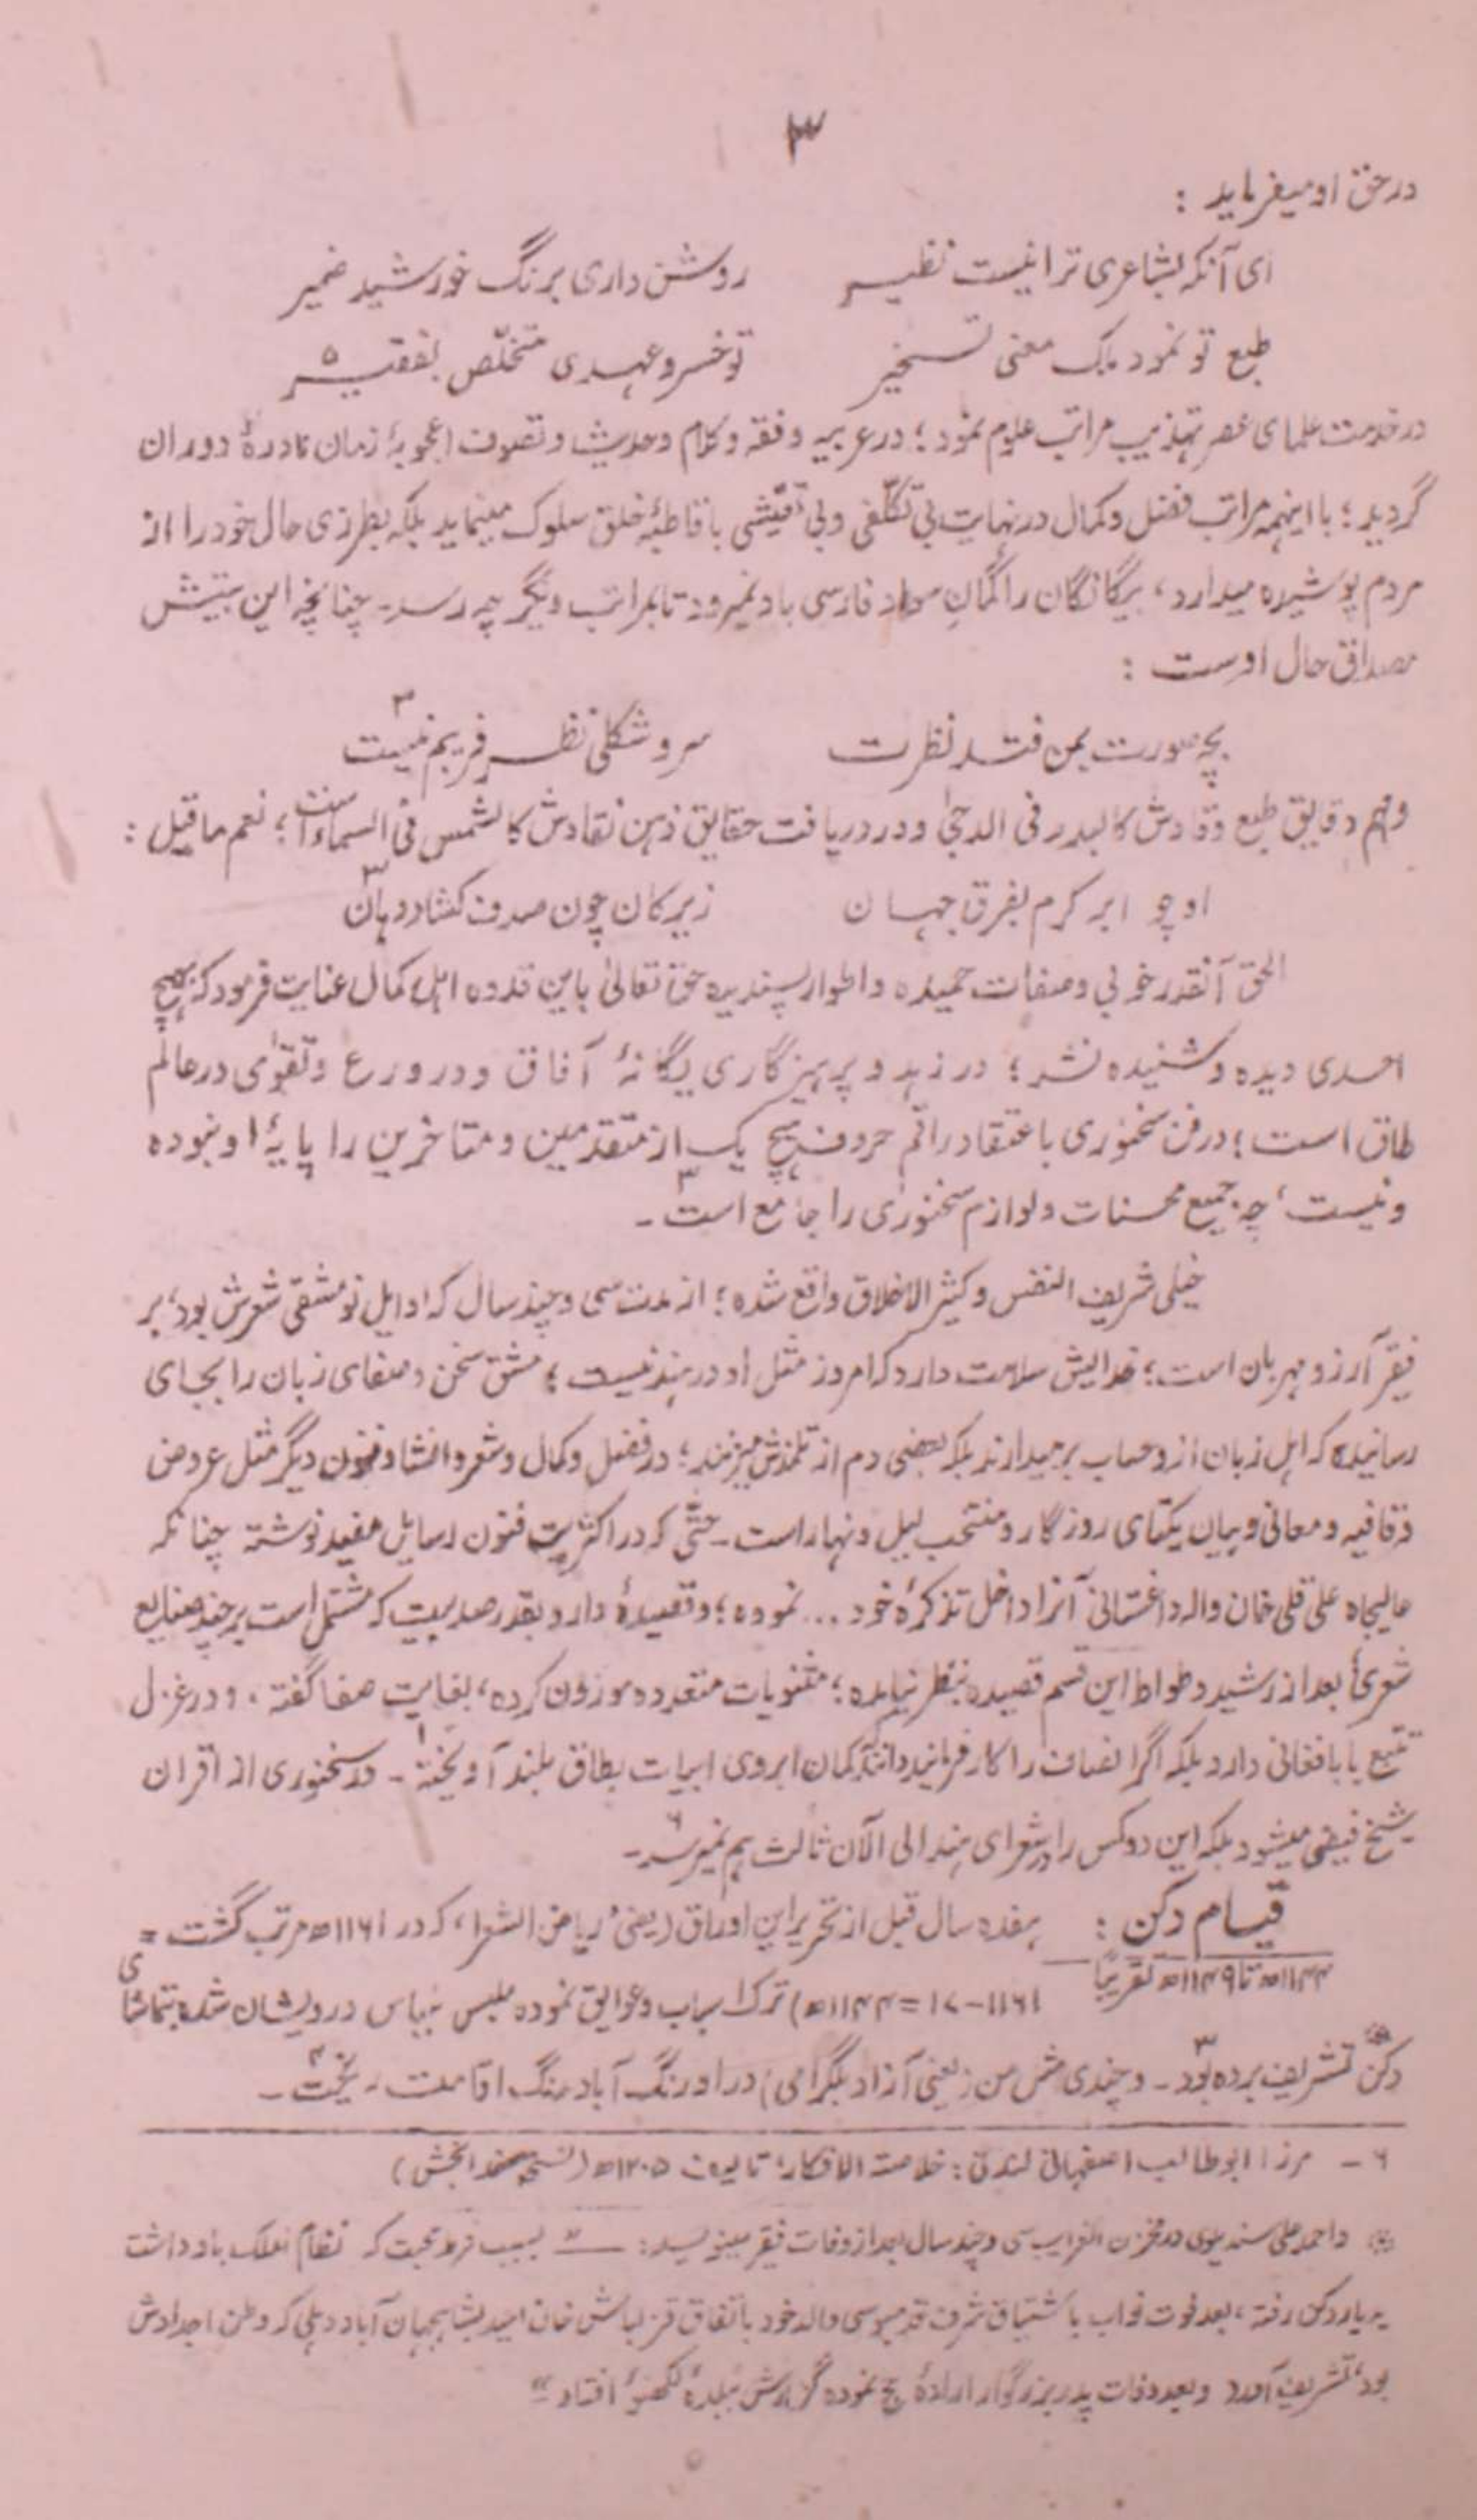 ۳
در حق او میفرماید :
ای آنکه بشاعری ترا نیست نظیر روشن داری برنگ خورشید ضمیر
طبع تو نمود ملک معنی تسخیر تو خسرو عهدی متخلّص بفقیر ۵
در خدمت علمای عصر تهذیب مراتب علوم نمود ؛ در عربیه و فقه و کلام و حدیث و تصوف اعجوبۀ زمان نادرۀ دوران
گردید ؛ با اینهمه مراتب فضل و کمال در نهایت بی تکلّفی و بی تعیّنی با قاطبۀ خلق سلوک مینماید بلکه بطرزی حال خود را از
مردم پوشیده میدارد ، بیگانگان را گمانِ سواد فارسی باد نمیرود تا بمراتب دیگر چه رسد ـ چنانچه این بیتش
مصداق حال اوست :
بچه صورت بمن فتد نظرت سر و شکلی نظر فریبم نیست ۳
و فهم دقایق طبع وقادش کالبدر فی الدجیٰ و در دریافت حقایق ذهن نقادش کالشمس فی السماء است ؛ نعم ماقیل :
او چو ابر کرم بفرق جهان زیرکان چون صدف کشاده دهان ۳
الحق آنقدر خوبی و صفات حمیده و اطوار پسندیده حق تعالیٰ باین قدوه اهل کمال عنایت فرمود که هیچ
احدی دیده و شنیده نشد ؛ در زهد و پرهیزگاری یگانۀ آفاق و در ورع و تقوٰی در عالم
طاق است ؛ در فن سخنوری باعتقاد راقم حروف هیچ یک از متقدمین و متاخرین را پایۀ او نبوده
و نیست ، چه جمیع محسنات و لوازم سخنوری را جامع است ۳ ـ
خیلی شریف النفس و کثیر الاخلاق واقع شده ؛ از مدت سی و چند سال که اوایل نومشقی شعرش بود ، بر
فقیر آرزو مهربان است ؛ خدایش سلامت دارد که امروز مثل او در هند نیست ؛ مشق سخن و صفای زبان را بجای
رسانیده که اهل زبان ازو حساب برمیدارند بلکه بعضی دم از تلمذش میزنند ؛ در فضل و کمال و شعر و انشا و فنون دیگر مثل عروض
و قافیه و معانی و بیان یکتای روزگار و منتخب لیل و نهار است ـ حتّی که در اکثر فنون رسایل مفید نوشته چنانکه
عالیجاه علی قلی خان واله داغستانی آنرا داخل تذکرۀ خود ... نموده ؛ و قصیدۀ دارد بقدر صد بیت که مشتمل است بر چند صنایع
شعری بعد از رشید وطواط این قسم قصیده بنظر نیامده ؛ مثنویات متعدده موزون کرده ، بغایت صفا گفته ، و در غزل
تتبع بابافغانی دارد بلکه اگر انصاف را کار فرمایند کمان ابروی ابیات بطاق بلند آویخته ـ در سخنوری از اقران
شیخ فیضی میشود بلکه این دو کس را در شعرای هند الی الآن ثالث بهم نمیرسد ۶ ـ
قیام دکن : هفده سال قبل از تحریر این اوراق ( یعنی ریاض الشعرا ، که در ۱۱۶۱ھ مرتب گشت =
۱۱۴۴ھ تا ۱۱۴۹ھ تقریباً ۱۱۶۱-۱۷ = ۱۱۴۴ھ ) ترک اسباب و عوایق نموده ملبس بلباس درویشان شده بتماشای
دکن تشریف برده بود ۳ ـ و چندی مثل من ( یعنی آزاد بلگرامی ) در اورنگ آباد رنگ اقامت ریخت ۴ ـ
۶ ـ مرزا ابوطالب اصفهانی لندنی : خلاصة الافکار ، تالیف ۱۲۰۵ھ ( نسخه خدابخش )
واحمد علی سندیلوی در مخزن الغرایب سی و چند سال بعد از وفات فقیر مینویسد : ــ " بسبب فرط محبت که نظام الملک باو داشت
بدیار دکن رفته ، بعد فوت نواب باشتیاق شرف قدمبوسی والد خود باتفاق قزلباش خان امید بشاهجهان آباد دهلی که وطن اجدادش
بود ، تشریف آورد و بعد وفات پدر بزرگوار ارادۀ حج نموده گذارش ببلدۀ لکهنؤ افتاد "